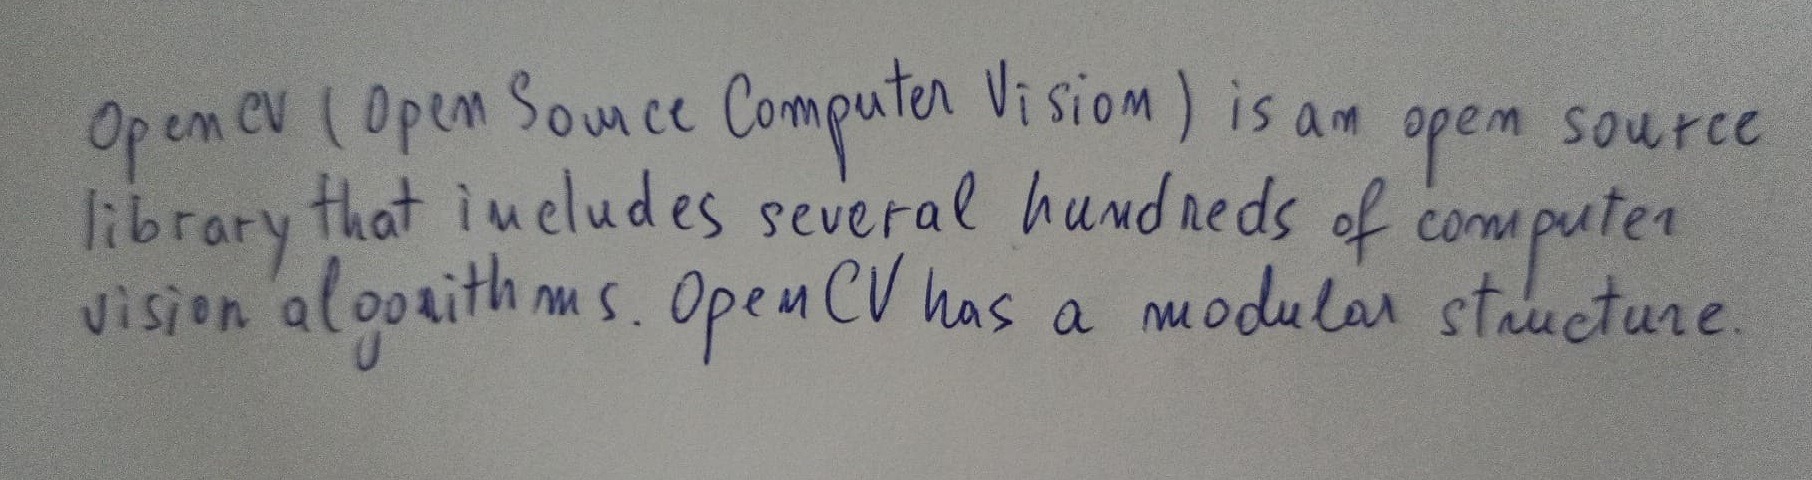 OpenCV (Open Source Computer Vision) is an open source
library that includes several hundreds of computer
vision algorithms. OpenCV has a modular structure.